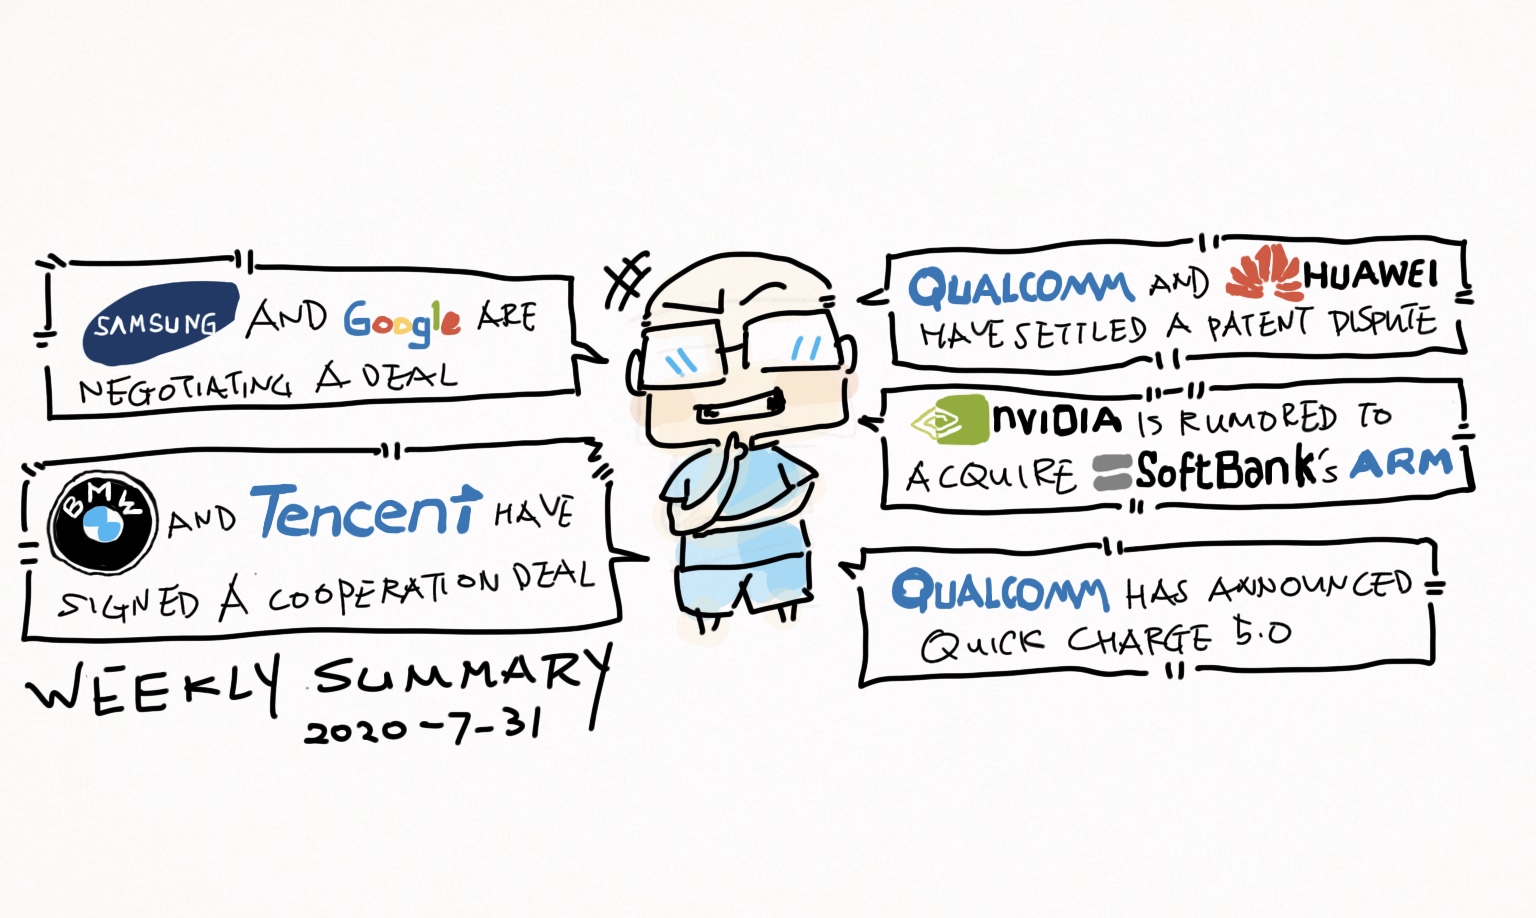 SAMSUNG AND Google ARE
NEGOTIATING A DEAL
BMW AND Tencent HAVE
SIGNED A COOPERATION DEAL
WEEKLY SUMMARY
2020-7-31
QUALCOMM AND HUAWEI
HAVE SETTLED A PATENT DISPUTE
NVIDIA IS RUMORED TO
ACQUIRE SoftBank's ARM
QUALCOMM HAS ANNOUNCED
QUICK CHARGE 5.0